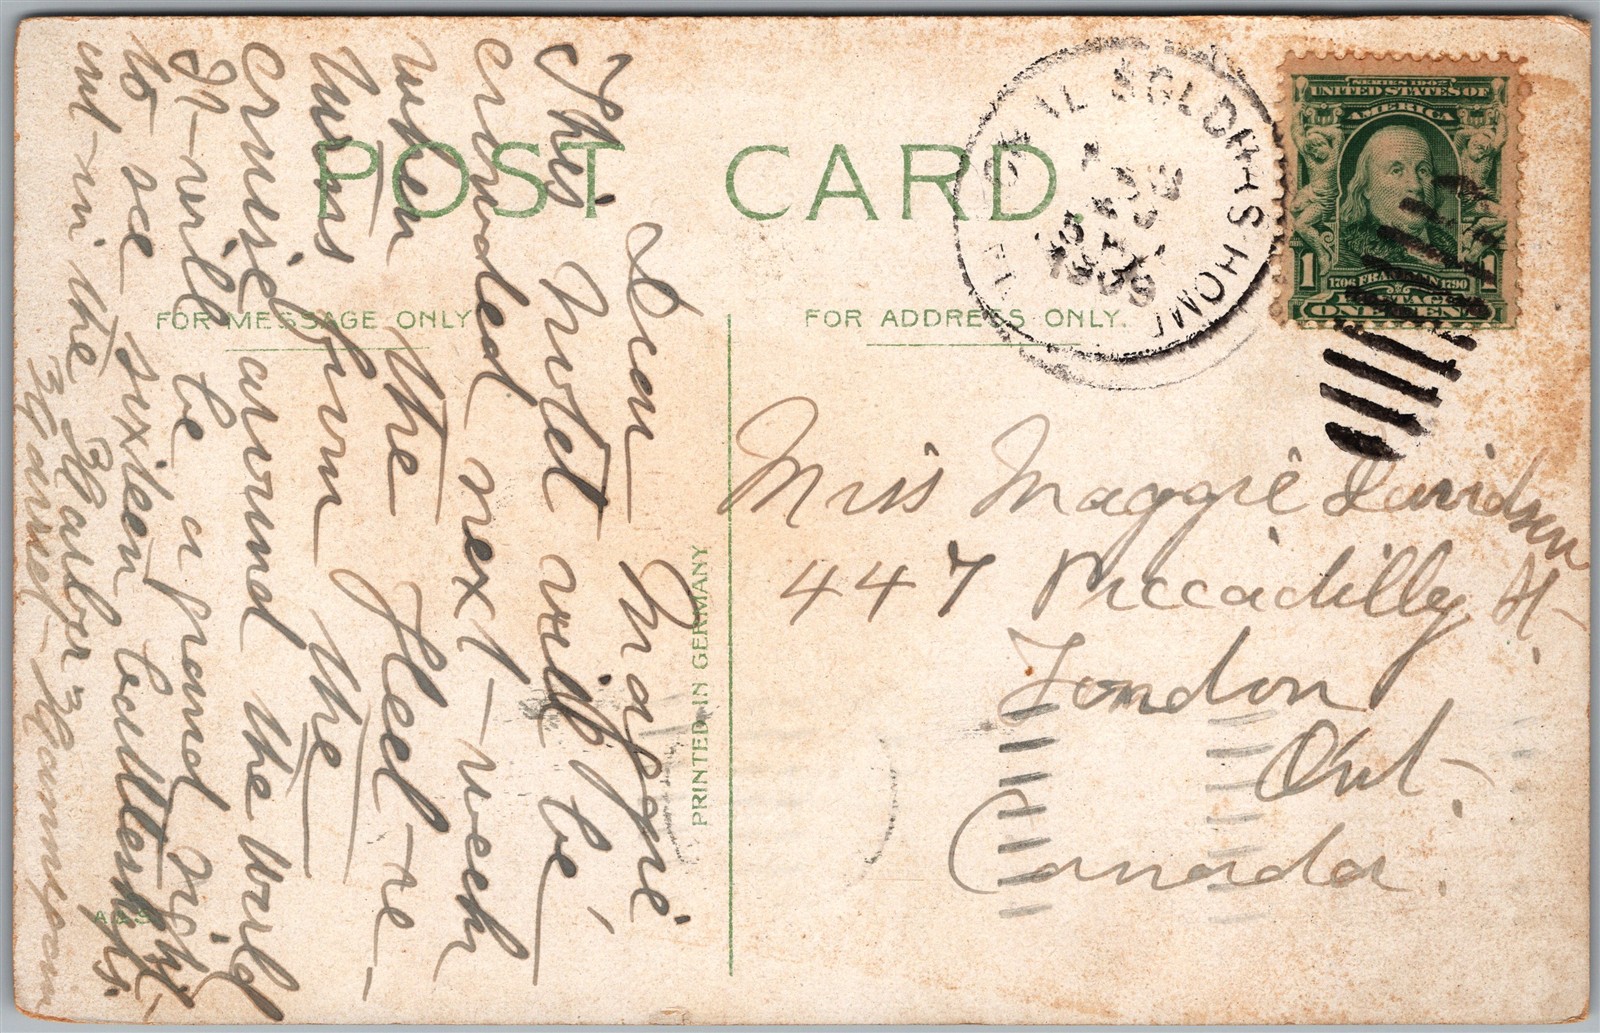 POST CARD
FOR MESSAGE ONLY
FOR ADDRESS ONLY.
PRINTED IN GERMANY
Dear Maggie
This Hotel will be
crowded next week
when the fleet re-
turns from the
cruise around the World
It will be a grand sight
to see sixteen battleships
out in the Harbor
Miss Maggie Davidson
447 Piccadilly St.
London
Ont.
Canada.
NATIONAL SOLDIERS HOME
1909
SERIES 1902
UNITED STATES OF
AMERICA
1 1
1706 FRANKLIN 1790
POSTAGE
ONE CENT